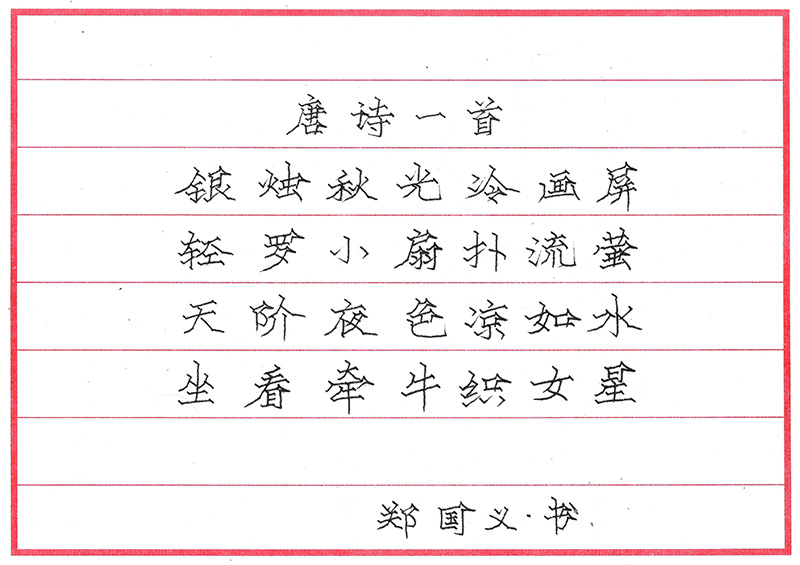 唐诗一首
银烛秋光冷画屏
轻罗小扇扑流萤
天阶夜色凉如水
坐看牵牛织女星
郑国义·书